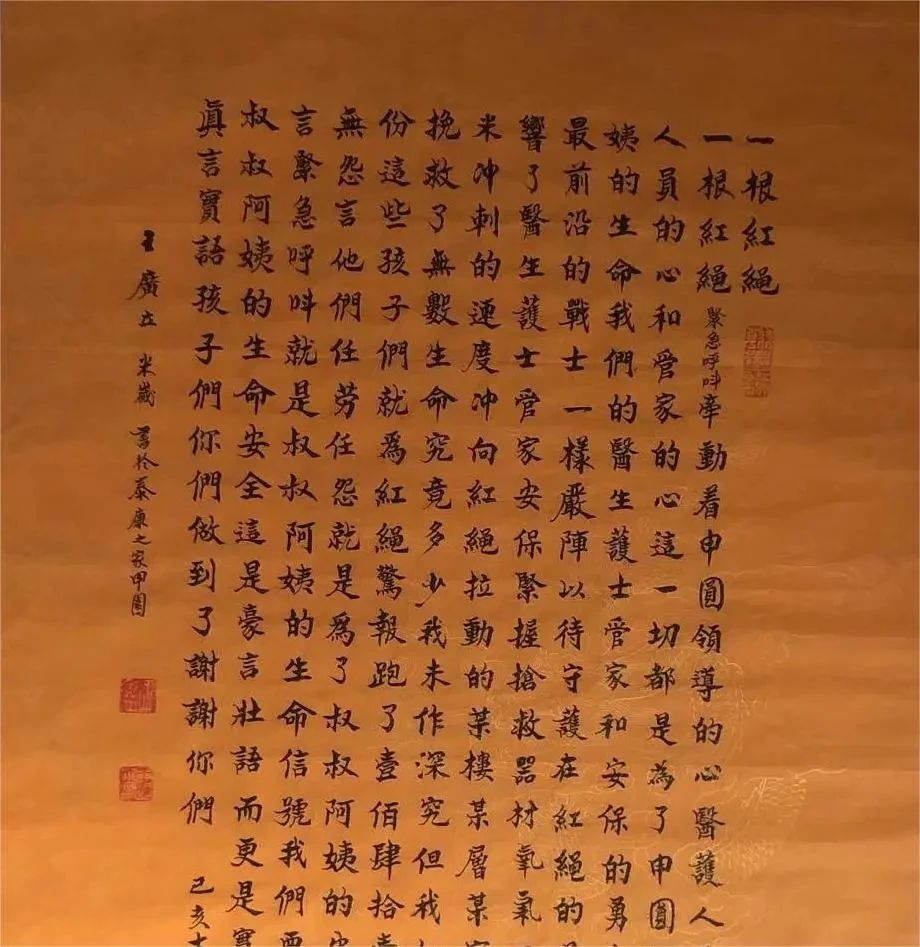 一根紅繩
一根紅繩緊急呼叫牽動着申園領導的心醫護人
人員的心和管家的心這一切都是為了申園
姨的生命我們的醫生護士管家和安保的勇
最前沿的戰士一樣嚴陣以待守護在紅繩的
響了醫生護士管家安保緊握搶救器材氧氣
米冲刺的速度冲向紅繩拉動的某樓某層某
挽救了無數生命究竟多少我未作深究但我
份這些孩子們就為紅繩驚報跑了壹佰肆拾
無怨言他們任劳任怨就是為了叔叔阿姨的
言緊急呼叫就是叔叔阿姨的生命信號我們
叔叔阿姨的生命安全這是豪言壯語而更是
真言實語孩子們你們做到了謝謝你們 己亥
王廣立 米嵗 書於泰康之家申園